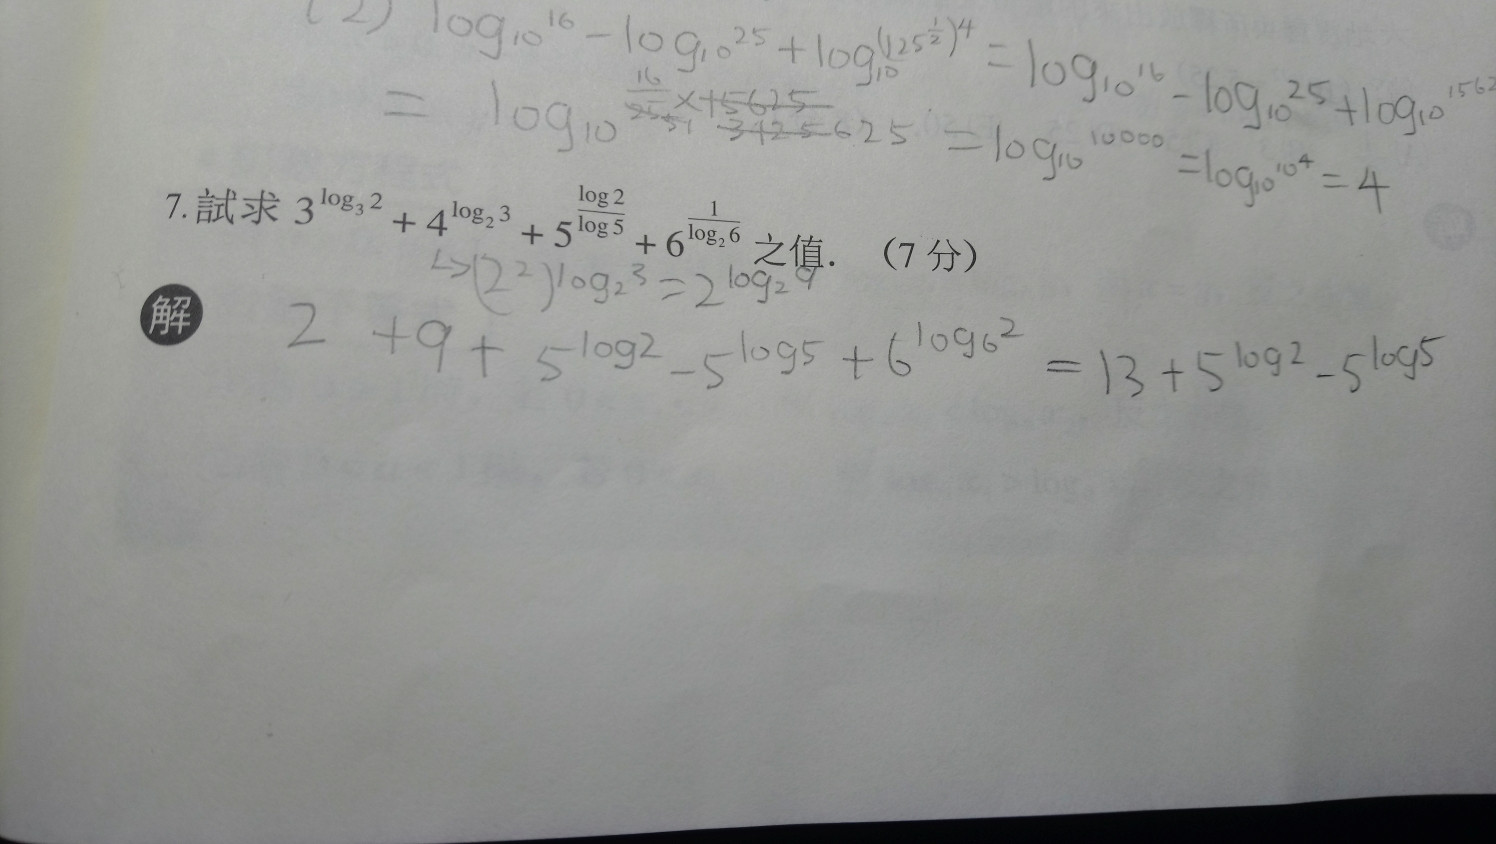 (2) log₁₀16 - log₁₀25 + log₁₀(125^{1/2})⁴ = log₁₀16 - log₁₀25 + log₁₀1562
= log₁₀ 625 = log₁₀10000 = log₁₀10⁴ = 4
7. 試求 3^{log₃2} + 4^{log₂3} + 5^{log2/log5} + 6^{1/log₂6} 之值. (7 分)
↳(2²)^{log₂3} = 2^{log₂9}
解 2 + 9 + 5^{log2} - 5^{log5} + 6^{log₆2} = 13 + 5^{log2} - 5^{log5}